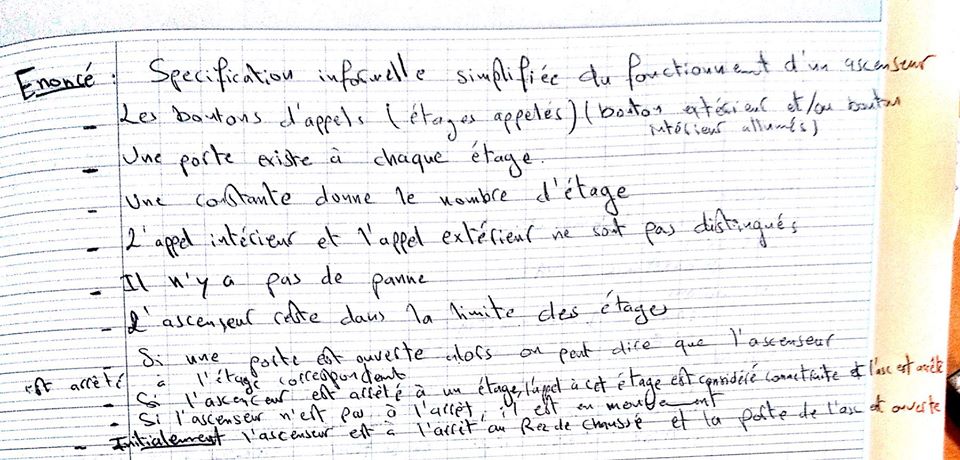 Enoncé : Specification informelle simplifiée du fonctionnment d'un ascenseur
- Les boutons d'appels (étages appelés) (bouton extérieur et/ou bouton
intérieur allumés)
- Une porte existe à chaque étage.
- Une constante donne le nombre d'étage
- L'appel intérieur et l'appel extérieur ne sont pas distingués
- Il n'y a pas de panne
- L'ascenseur reste dans la limite des étages
- Si une porte est ouverte alors on peut dire que l'ascenseur
est arrêté à l'étage correspondent
- Si l'ascenceur est arrêté à un étage, l'appel à cet étage est considéré et l'asc est arrêté
- Si l'ascenseur n'est pas à l'arrêt, il est en mouvement
- Initialement l'ascenseur est à l'arrêt au Rez de chaussé et la porte de l'asc est ouverte